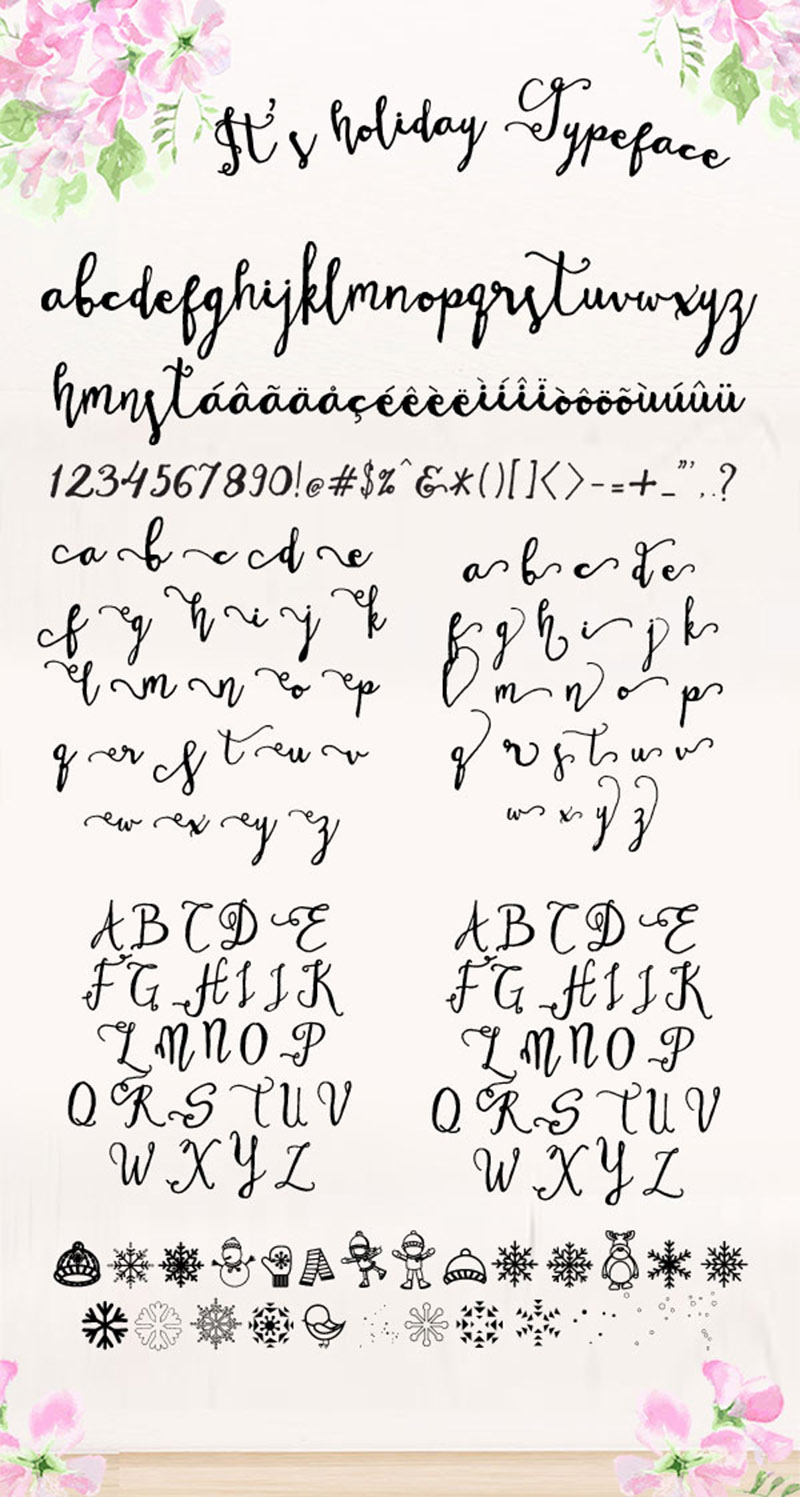 It's holiday Typeface
abcdefghijklmnopqrstuvwxyz
hmnstáâãäåçéêèëìíîïòôöõùúûü
1234567890!@#$%^&*()[]<>-=+_"',.?
a b c d e
f g h i j k
l m n o p
q r s t u v
w x y z
a b c d e
f g h i j k
l m n o p
q r s t u v
w x y z
A B C D E
F G H I J K
L M N O P
Q R S T U V
W X Y Z
A B C D E
F G H I J K
L M N O P
Q R S T U V
W X Y Z